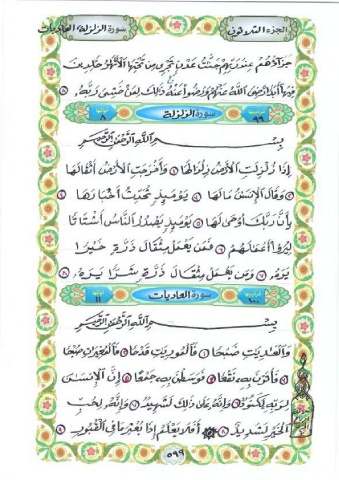 الجزء الثلاثون
سورة الزلزلة العاديات
جزاؤهم عند ربهم جنت عدن تجري من تحتها الأنهر خلدين
فيها أبدا رضي الله عنهم ورضوا عنه ذلك لمن خشي ربه ٨
ترتيبها ٩٩ سورة الزلزلة آياتها ٨
بسم الله الرحمن الرحيم
إذا زلزلت الأرض زلزالها ١ وأخرجت الأرض أثقالها
٢ وقال الإنسن ما لها ٣ يومئذ تحدث أخبارها
٤ بأن ربك أوحى لها ٥ يومئذ يصدر الناس أشتاتا
ليروا أعملهم ٦ فمن يعمل مثقال ذرة خيرا
يره ٧ ومن يعمل مثقال ذرة شرا يره ٨
ترتيبها ١٠٠ سورة العاديات آياتها ١١
بسم الله الرحمن الرحيم
والعديت ضبحا ١ فالموريت قدحا ٢ فالمغيرت صبحا
٣ فأثرن به نقعا ٤ فوسطن به جمعا ٥ إن الإنسن
لربه لكنود ٦ وإنه على ذلك لشهيد ٧ وإنه لحب
الخير لشديد ٨ أفلا يعلم إذا بعثر ما في القبور ٩
٥٩٩